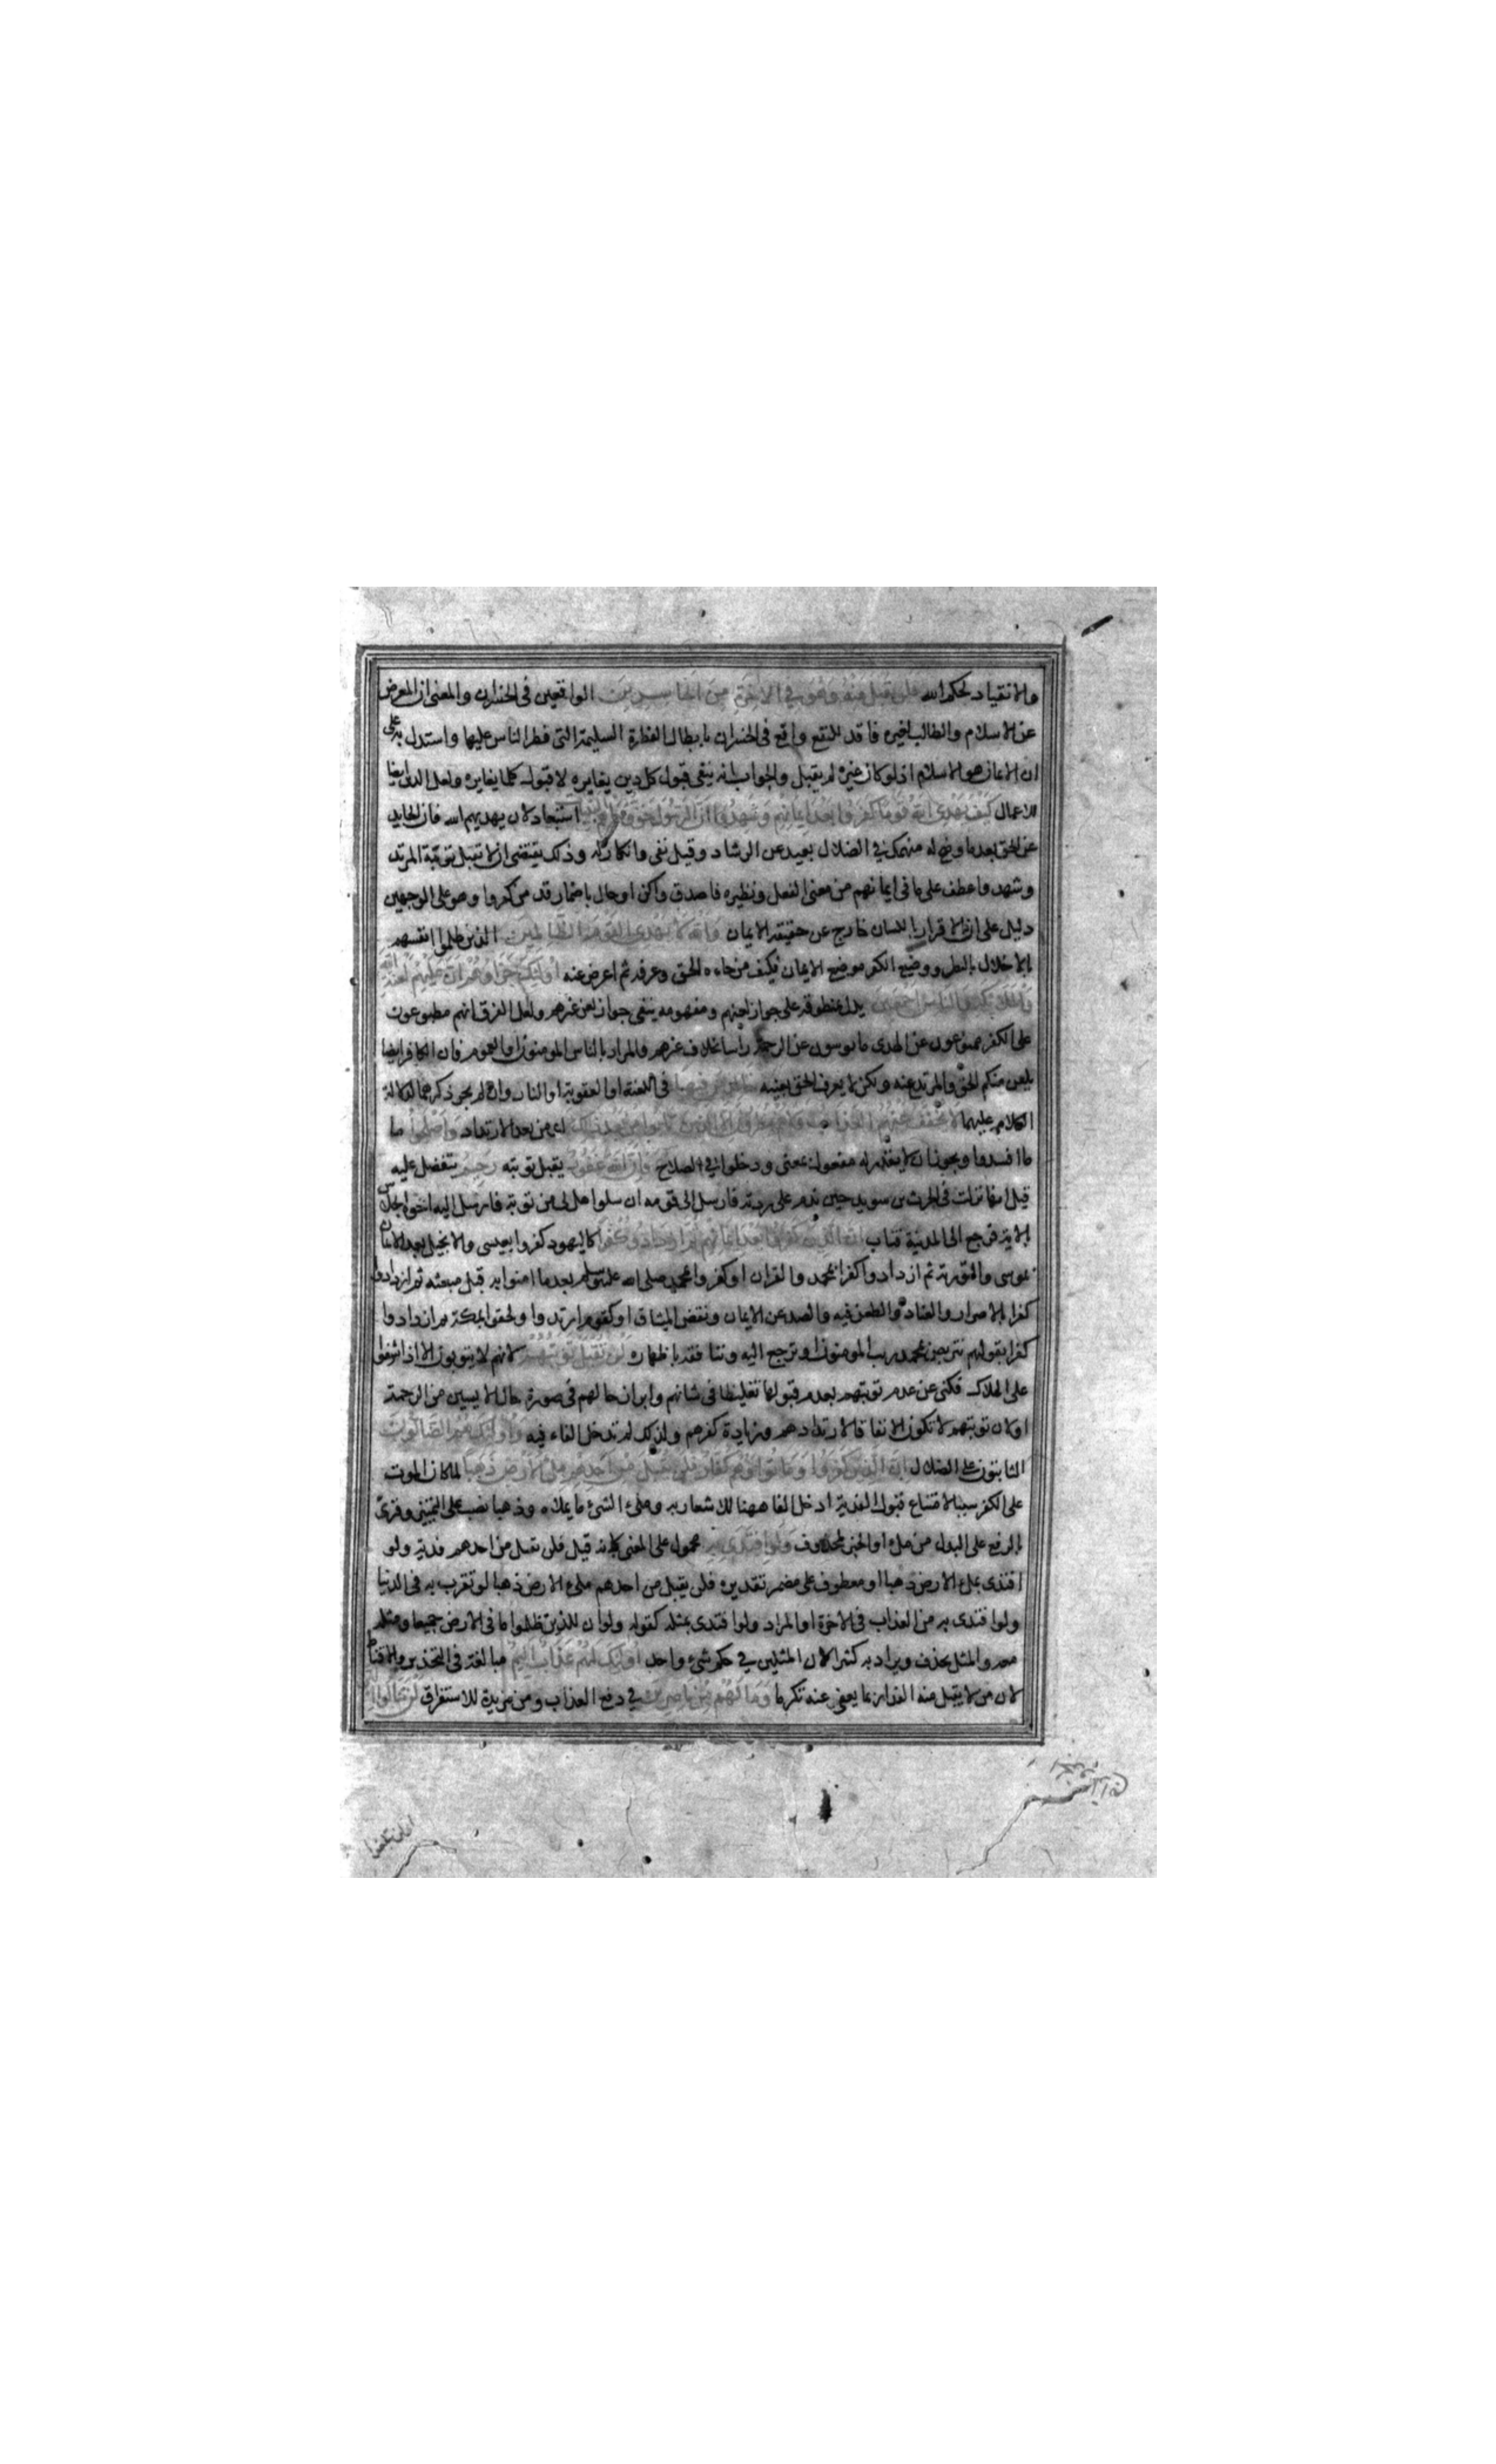 والانقياد لحكم الله فلن يقبل منه وهو في الاخرة من الخاسرين الواقعين فى الخسران والمعنى ان المعرض
عن الاسلام والطالب لغيره فاقد للنفع واقع فى الخسران بابطال الفطرة السليمة التى فطر الناس عليها واستدل به على
ان الايمان هو الاسلام اذ لو كان غيره لم يقبل والجواب انه ينفى قبول كل دين يغايره لا قبول كل ما يغايره ولعل الدين ايضا
للاعمال كيف يهدى الله قوما كفروا بعد ايمانهم وشهدوا ان الرسول حق وجاءهم البينات استبعاد لان يهديهم الله فان الحايد
عن الحق بعد ما وضح له منهمك في الضلال بعيد عن الرشاد وقيل نفى وانكار له وذلك يقتضى ان لا تقبل توبة المرتد
وشهدوا عطف على ما فى ايمانهم من معنى الفعل ونظيره فاصدق واكن او حال باضمار قد من كفروا وهو على الوجهين
دليل على ان الاقرار باللسان خارج عن حقيقة الايمان والله لا يهدى القوم الظالمين الذين ظلموا انفسهم
بالاخلال بالنظر ووضع الكفر موضع الايمان فكيف من جاءه الحق وعرفه ثم اعرض عنه اولئك جزاؤهم ان عليهم لعنة الله
والملائكة والناس اجمعين يدل بمنطوقه على جواز لعنهم ومفهومه ينفى جواز لعن غيرهم ولعل الفرق انهم مطبوعون
على الكفر ممنوعون عن الهدى مايوسون عن الرحمة راسا بخلاف غيرهم والمراد بالناس المومنون او العموم فان الكافر ايضا
يلعن منكر الحق والمرتد عنه ولكن لا يعرف الحق بعينه خالدين فيها فى اللعنة او العقوبة او النار وان لم يجر ذكرهما لدلالة
الكلام عليهما لا يخفف عنهم العذاب ولاهم ينظرون الا الذين تابوا من بعد ذلك اى من بعد الارتداد واصلحوا ما
ما افسدوا ويجوز ان لا يقدر له مفعول بمعنى ودخلوا في الصلاح فان الله غفور يقبل توبته رحيم يتفضل عليه
قيل انها نزلت فى الحرث بن سويد حين ندم على ردته فارسل الى قومه ان سلوا هل لى من توبة فارسل اليه اخوه الجلاس
بالاية فرجع الى المدينة فتاب ان الذين كفروا بعد ايمانهم ثم ازدادوا كفرا كاليهود كفروا بعيسى والانجيل بعد الايمان
بموسى والتورية ثم ازدادوا كفرا بمحمد والقران او كفروا بمحمد صلى الله عليه وسلم بعد ما امنوا به قبل مبعثه ثم ازدادوا
كفرا بالاصرار والعناد والطعن فيه والصد عن الايمان ونقض الميثاق او كقوم ارتدوا ولحقوا بمكة ثم ازدادوا
كفرا بقولهم نتربص بمحمد ريب المنون او نرجع اليه وننافقه باظهاره لن تقبل توبتهم لانهم لا يتوبون الا اذا اشرفوا
على الهلاك فكنى عن عدم توبتهم بعدم قبولها تغليظا فى شانهم وابراز حالهم فى صورة حال الايسين من الرحمة
او لان توبتهم لا تكون الا نفاقا لا لارتدادهم وزيادة كفرهم ولذلك لم تدخل الفاء فيه واولئك هم الضالون
الثابتون على الضلال ان الذين كفروا وماتوا وهم كفار فلن يقبل من احدهم ملئ الارض ذهبا لما كان الموت
على الكفر سببا لامتناع قبول الفدية ادخل الفا ههنا للاشعار به وملئ الشئ ما يملاه وذهبا نصب على التمييز وقرئ
بالرفع على البدل من ملئ او الخبر لمحذوف ولو افتدى به محمول على المعنى كانه قيل فلن تقبل من احدهم فدية ولو
افتدى بملئ الارض ذهبا او معطوف على مضمر تقديره فلن يقبل من احدهم ملئ الارض ذهبا لو تقرب به فى الدنيا
ولو افتدى به من العذاب فى الاخرة او المراد ولو افتدى بمثله كقوله ولو ان للذين ظلموا ما فى الارض جميعا ومثله
معه والمثل يحذف ويراد به كثيرا لان المثلين في حكم شئ واحد اولئك لهم عذاب اليم مبالغة فى التحذير والاقناط
لان من لا يقبل منه الفدا ربما يعفى عنه تكرما وما لهم من ناصرين في دفع العذاب ومن مزيدة للاستغراق لن تنالوا